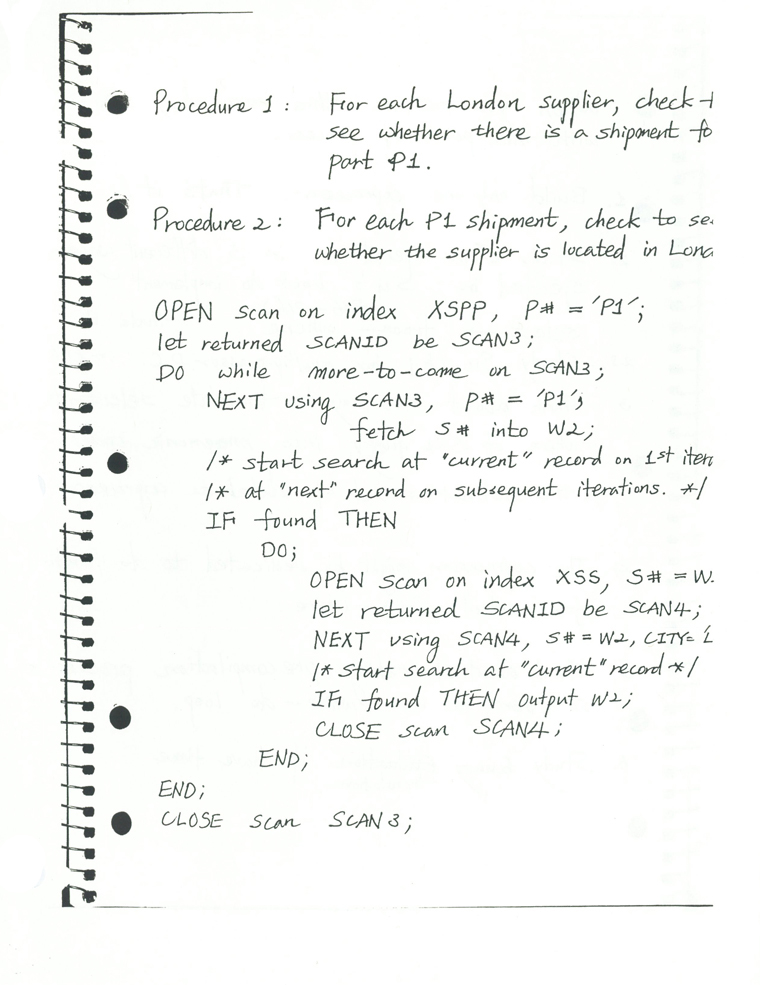 Procedure 1 : For each London supplier, check
see whether there is a shipment fo
part P1.
Procedure 2 : For each P1 shipment, check to se
whether the supplier is located in Lon
OPEN scan on index XSPP, P# = 'P1';
let returned SCANID be SCAN3;
DO while more-to-come on SCAN3;
NEXT using SCAN3, P# = 'P1';
fetch S# into W2;
/* start search at "current" record on 1st iter
/* at "next" record on subsequent iterations. */
IF found THEN
DO;
OPEN scan on index XSS, S# = W
let returned SCANID be SCAN4;
NEXT using SCAN4, S# = W2, CITY= 'L
/* start search at "current" record */
IF found THEN output W2;
CLOSE scan SCAN4;
END;
END;
CLOSE scan SCAN3;